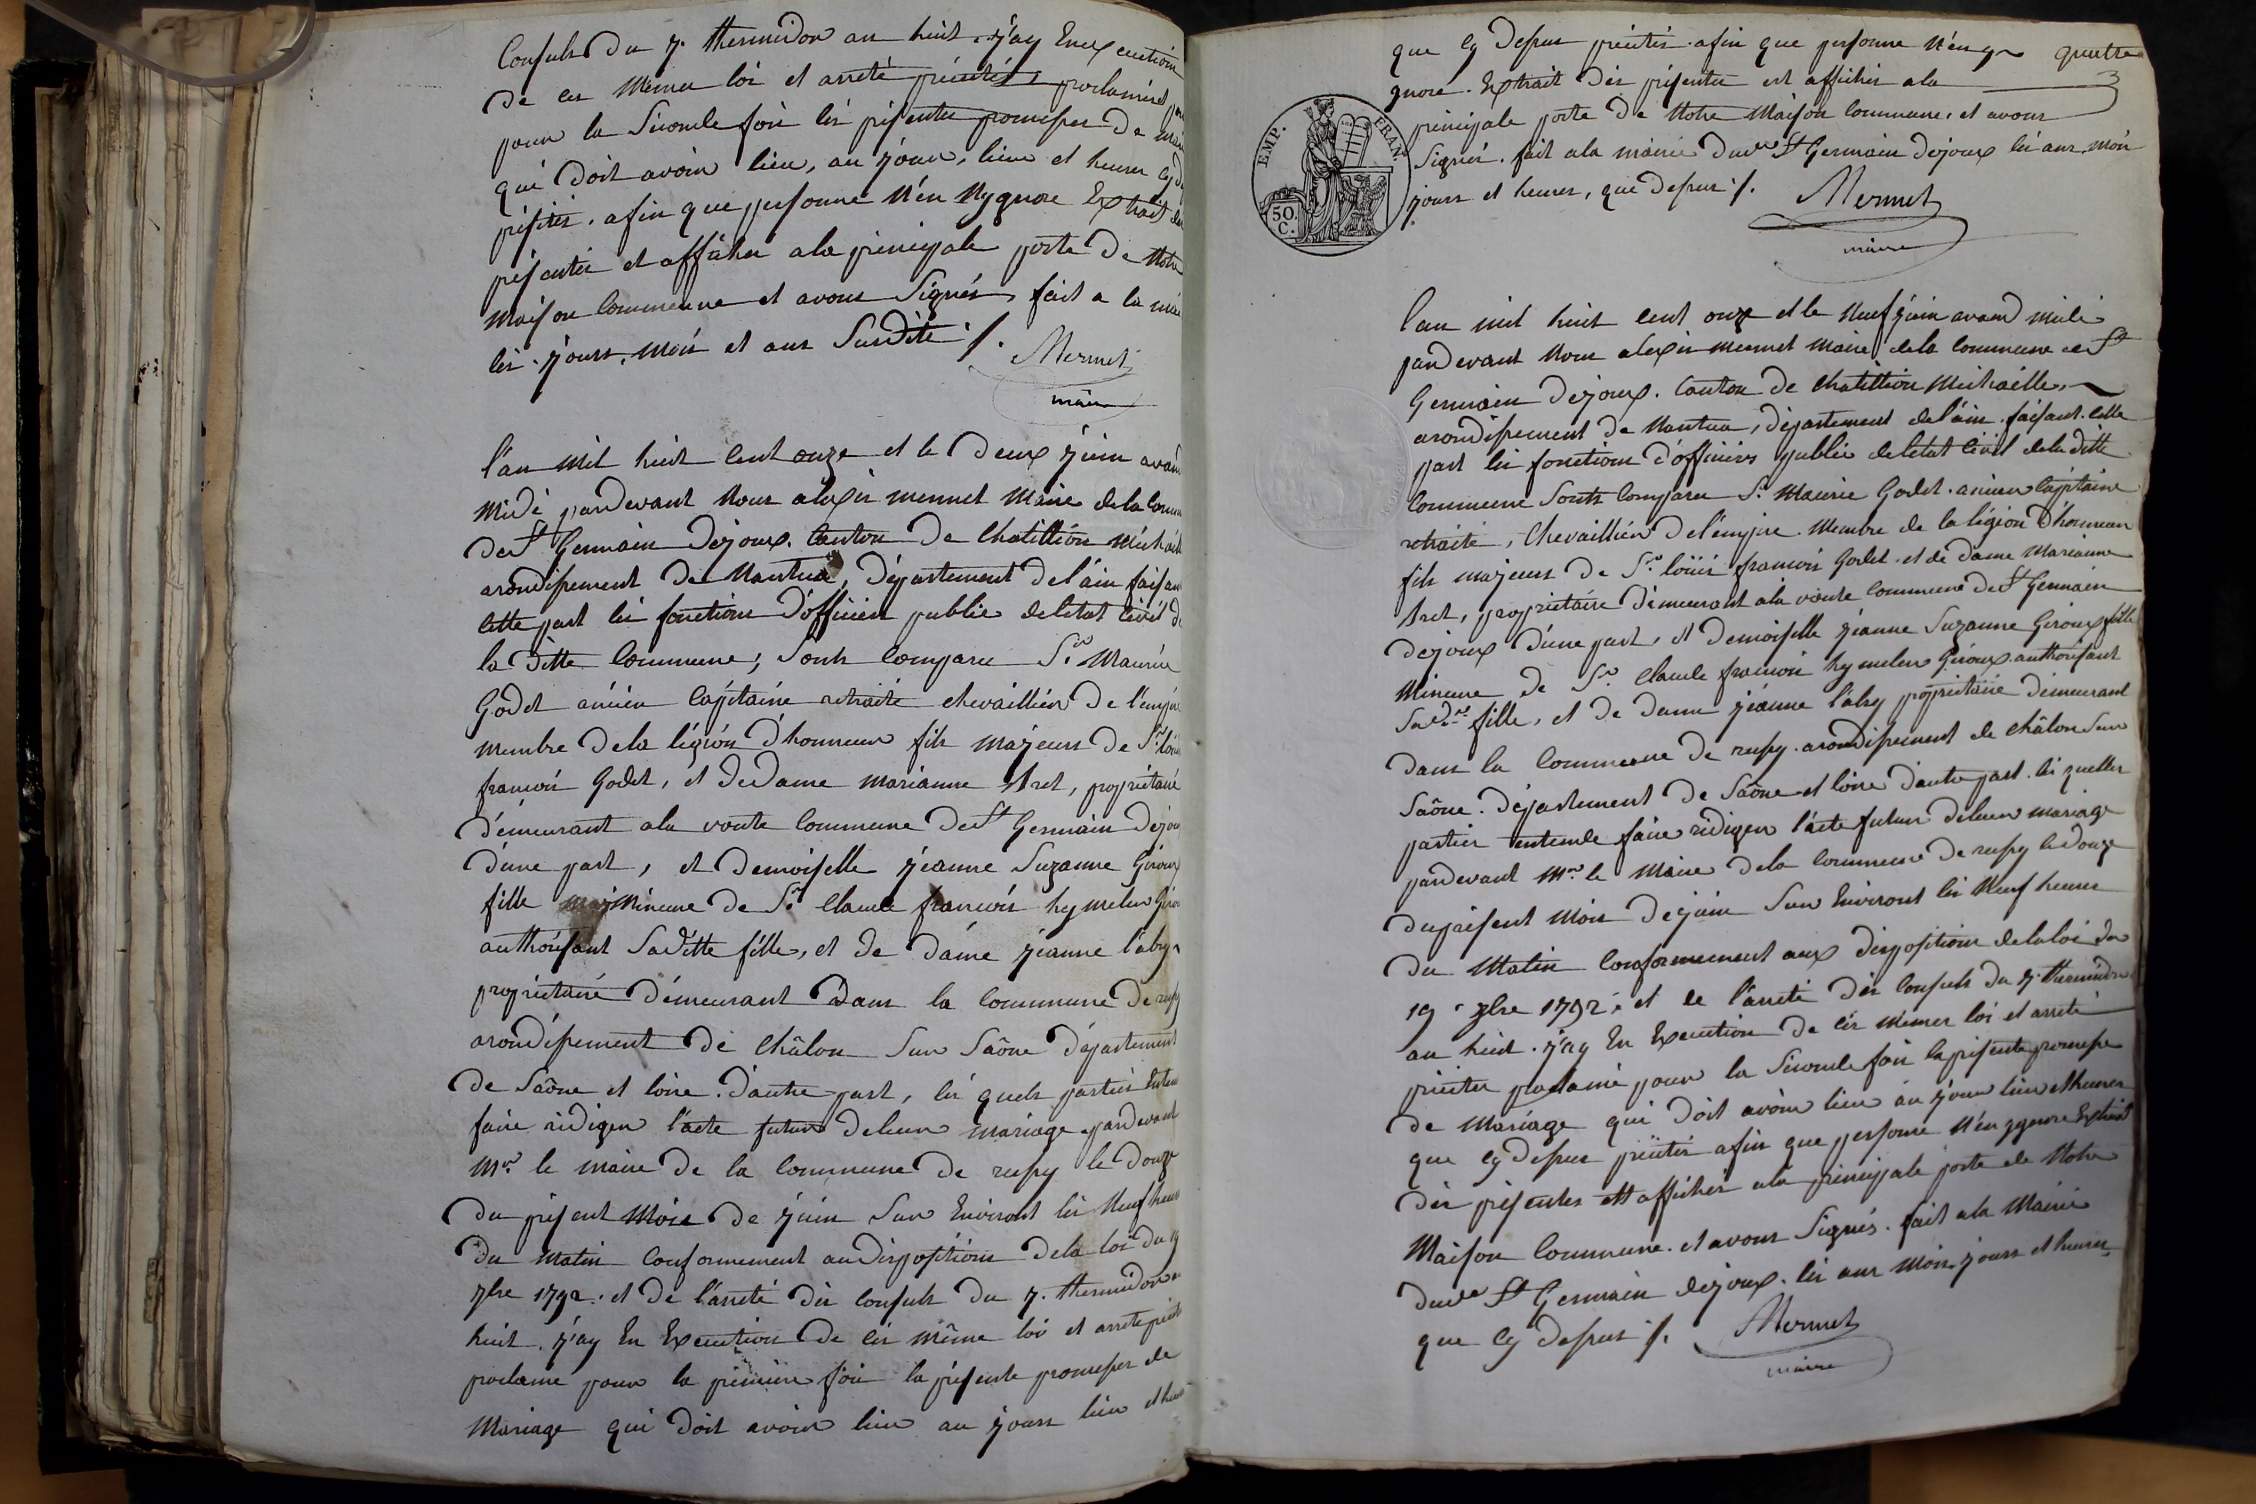 Consuls du 7. thermidor an huit. j'ay En execution
de ces Memes loi et arreté précités proclamés
pour la Séconde fois les présentes promesses de
qui doit avoir lieu, au jour, lieu et heures cyd
présités. afin que personne n'en Nygnore Extrait des
présentes et affiches a la principale porte de Notre
Maison Commeune et avons Signés, fait a la mai
les jours, mois et ans Susdits ./.
Mermet
maire
l'an mil huit cent onze et le Deux juin avan
Midi pardevant Nous alexis mermet Maire de la Comu
de St Germain Dejoux. Canton de Chatillion Michaille
arondissement de Nantua, Département de l'ain faisan
cette part les fonctions d'officiers public de letat civil d
la ditte Commeune; Sonts Comparu Sr. Maurice
Godet ancien Capitaine retraité chevaillier de l'empi
membre de la légion d'honneur fils majeurs de Sr. loui
françois Godet, et de Dame marianne Aret, propriétaire
démeurant a la voute Commeune de St Germain dejou
d'une part, et Demoiselle jéanne Suzanne Giroux
fille Mineure de Sr. Claude françois hymelin Giro
authorisant Saditte fille, et de dame jéanne l'abry
propriétaire démeurant Dans la Commeune de
arondissement de Châlon Sur Saône département
de Saône et loire. d'autre part, les quels parties Enten
faire rédiger l'acte futur de leur mariage pardevant
Mr. le maire de la Commeune de le Douze
du présent Mois de juin Sur Environt les Neuf heures
du Matin conformement au dispositions de la loi du 19
7bre 1792. et de l'arreté des Consuls du 7. thermidor an
huit. j'ay En Execution de ces même loi et arreté précit
proclamé pour la prémiere fois la présente promesses de
Mariage qui doit avoir lieu au jours lieu et heures
que cy dessus précités. afin que personne N'en yg quattre
gnore. Extrait des présentes est affichés a la 3
principale porte de Notre Maison Commeune. et avons
Signés. fait a la mairie dud. St Germain dejoux les ans, mois
jours et heures, que dessus ./.
EMP. FRAN.
50. C.
Mermet
maire
l'an mil huit cent onze et le Neuf juin avand midi
pardevant Nous alexis mermet maire de la Commeune de St
Germain dejoux. Canton de chatillion Michaille,
arondissement de Nantua, département de l'ain. faisant. cette
part les fonctions d'officiers public de letat civil de la ditte
Commeune Sonts Comparu Sr. Maurice Godet. ancien Capitaine
retraité, Chevaillier de l'empire. Membre de la légion d'honneur
fils majeurs de Sr. louis françois Godet. et de dame Marianne
Aret, propriétaire démeurant a la voute Commeune de St Germain
dejoux d'une part, et demoiselle jéanne Suzanne Giroux fille
Mineure de Sr. Claude françois hymelin Giroux. authorisant
Sad.te fille, et de dame jéanne l'abry propriétaire démeurant
dans la Commeune de arondissement de Châlon Sur
Saône. département de Saône et loire d'autre part. les quelles
parties entende faire rédiger l'acte futur de leur mariage
pardevant Mr. le Maire de la Commeune de le Douze
du présent Mois de juin Sur Environt les Neuf heures
du Matin Conformement aux dispositions de la loi du
19 7bre 1792. et de l'arreté des Consuls du 7. thermidor
an huit. j'ay En Execution de ces Memes loi et arreté
précités proclamé pour la Séconde fois la présente promesse
de Mariage qui doit avoir lieu au jour lieu et heures
que cy dessus précités afin que personne N'en ygnore Extrait
des présentes est affichés a la principale porte de Notre
Maison Commeune. et avons Signés. fait a la Mairie
dud. St Germain dejoux. les ans mois jours et heures,
que cy dessus ./. Mermet
maire